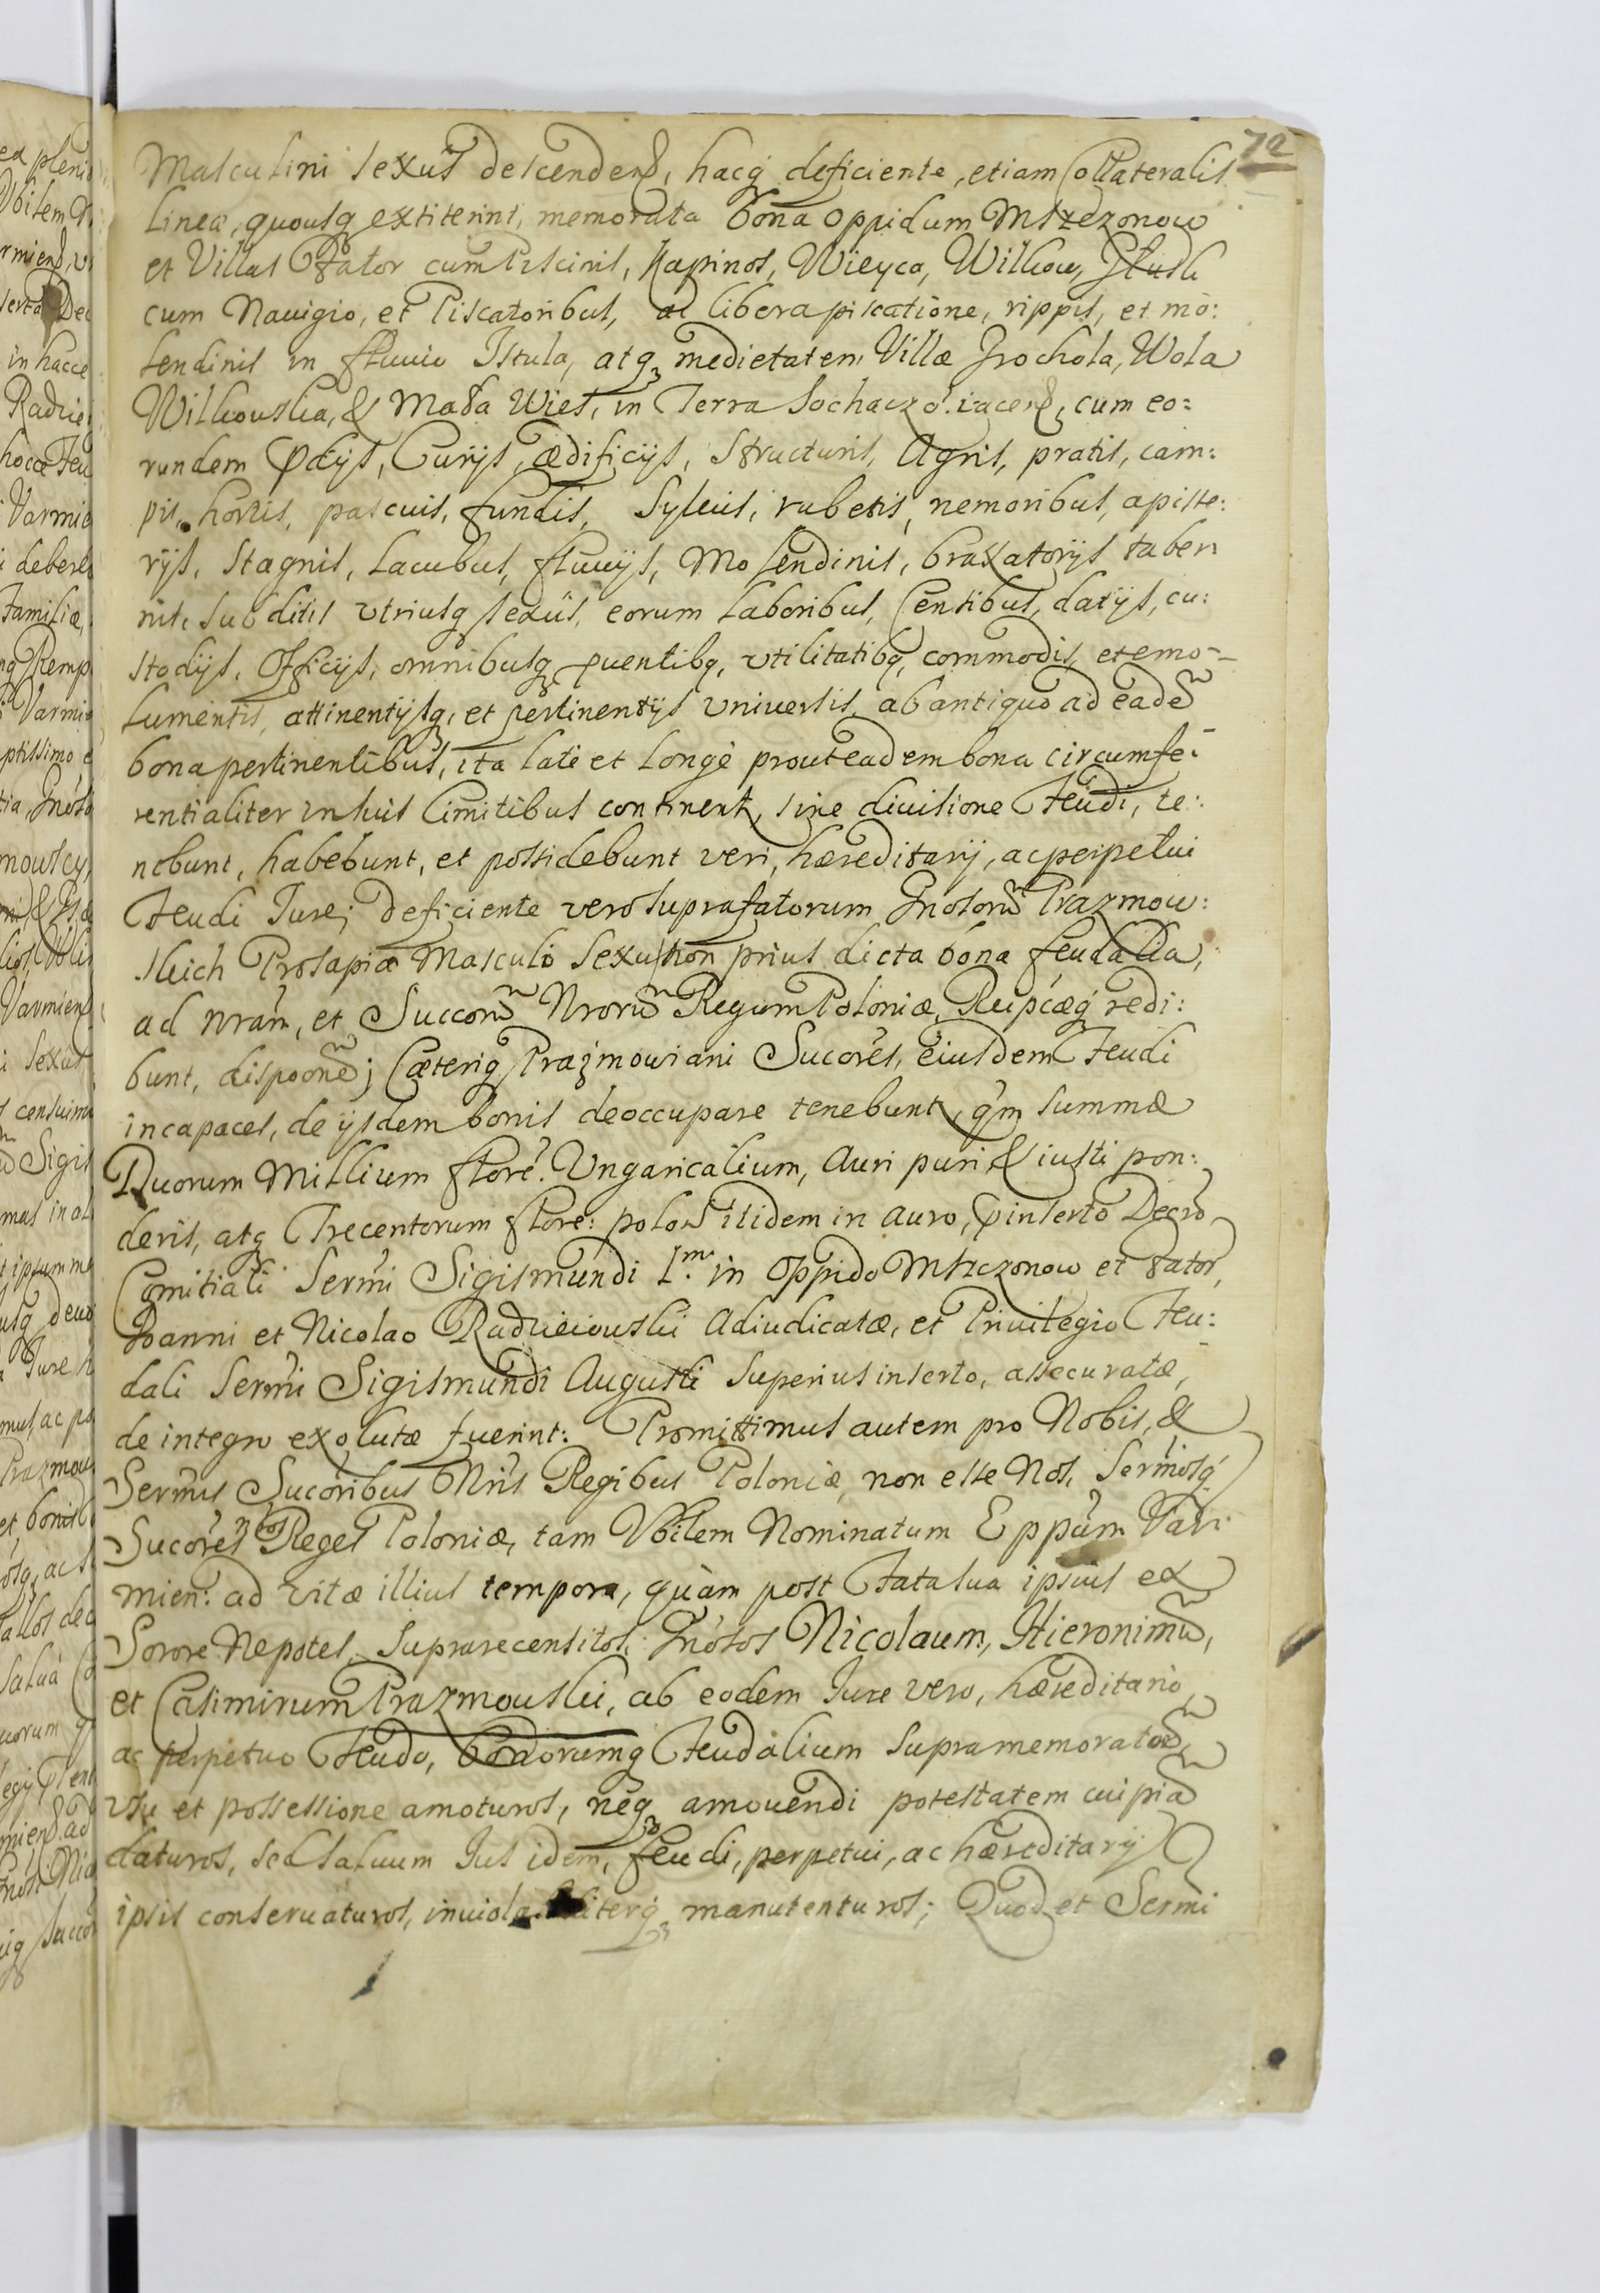 72
Masculini sexus descenden, hacq deficiente, etiam Collateralis
linea, quousq extiterint, memorata bona oppidum Mszczonow
et Villas Zator cum Piscinis, Kapinos, Wieyca, Wilkow,
cum Nauigio, et Piscatoribus, ac libera piscatione, rippis, et mo:
lendinis in fluuio Istula, atq medietatem Villæ Grochola, Wola
Wilkouska, & Mała Wies, in Terra Sochaczo. iacen, cum eo:
rundem prædijs, Curijs, ædificijs, structuris, Agris, pratis, cam:
pis, hortis, pascuis, fundis, syluis, rubetis, nemoribus, apiste:
rijs, stagnis, lacubus, fluuijs, Molendinis, braxatorijs taber
nis, subditis vtriusq sexus, eorum laboribus, Censibus, datijs, cu:
stodijs, Officijs, omnibusq puentibq, vtilitatibq, commodis, et emo-
lumentis, attinentijsq, et pertinentijs vniuersis, ab antiquo ad eadē
bona pertinentibus, ita late et longè prout eadem bona circumfe-
rentialiter in suis limitibus continent, sine diuisione feudi, te:
nebunt, habebunt, et possidebunt veri, hæreditarij, ac perpetui
feudi Jure; deficiente vero suprafatorum Gnosorū Prazmow:
skich Prosapiæ Masculo Sexu, non prius dicta bona feudalia,
ad nram, et Succorū Nrorū Regum Poloniæ, Reipcæq redi:
bunt, dispoonē; Cæteriq Prazmowiani Sucores, eiusdem feudi
incapaces, de ijsdem bonis deoccupare tenebunt, qm summæ
Duorum Millium flore. Vngaricalium, Auri puri & iusti pon:
deris, atq Trecentorum flore: polon itidem in auro, p inserto Decro
Comitiali Sermi Sigismundi I.mi in Oppido Mszczonow et Zator,
Joanni et Nicolao Radzieiouski Adiudicatæ, et Priuilegio feu:
dali Sermi Sigismundi Augusti superius inserto, assecuratæ,
de integro exolutæ fuerint: Promittimus autem pro Nobis, &
Sermis Sucoribus Nris Regibus Poloniæ, non esse Nos, Sermosq
Sucores nros Reges Poloniæ, tam Vbilem Nominatum Eppum Var:
mien: ad vitæ illius tempora, quàm post fata sua ipsius ex
Sorore Nepotes, suprarecensitos, Gnosos Nicolaum, Hieronimū,
et Casimirum Prazmouskie, ab eodem Jure vero, hæreditario,
ac perpetuo feudo, bonorumq feudalium supramemoratorū,
vsu et possessione amoturos, neq amouendi potestatem cuipiā
daturos, sed saluum Jus idem, feudi, perpetui, ac hæreditarij
ipsis conseruaturos, inuiolabiliterq manutenturos; Quod et Sermi